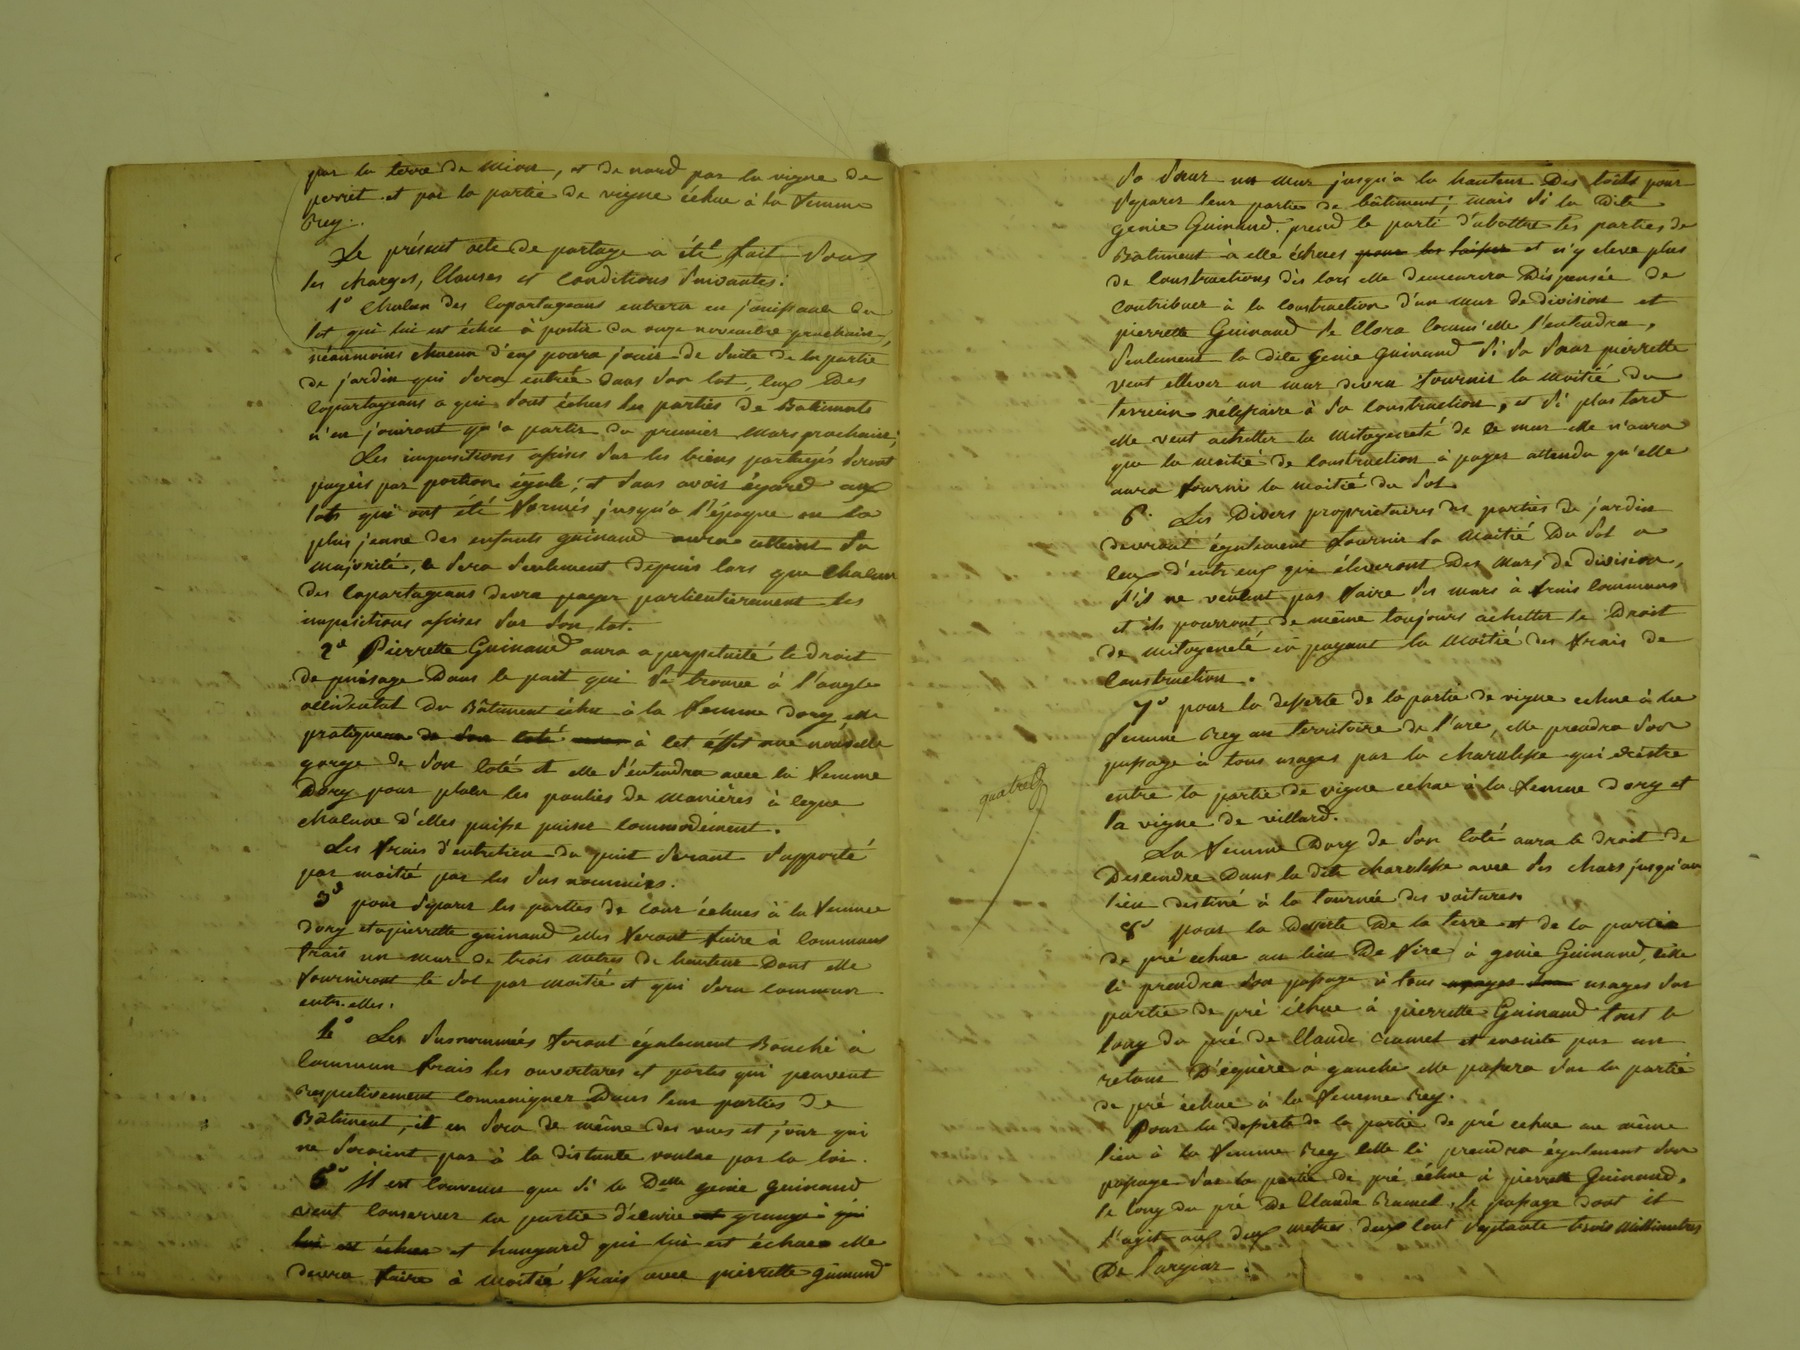 par la terre de Mion, et de nord par la vigne de
perret et par la partie de vigne échue à la femme
Crey.
Le présent acte de partage a été fait sous
les charges, Clauses et Conditions Suivantes:
1° Chacun des Copartageans entrera en jouissance du
lot qui lui est échu à partir du onze novembre prochain,
néanmoins chacun d'eux poura jouir de suite de la partie
de jardin qui sera entrée dans son lot, ceux Des
Copartageans a qui sont échues les parties de Batiments
n'en jouiront qu'a partir du premier Mars prochain;
Les impositions assises sur les biens partagés seront
payées par portion égale; et sans avoir égared aux
lots qui ont été formés jusqu'a l'époque ou la
plus jeune des enfants guinand aura atteint sa
majorité, ce sera seulement depuis lors que Chacun
des Copartageans devra payer particulierement les
impositions assises sur son lot.
2° Pierrette Guinand aura a perpetuité le droit
de puisage Dans le puit qui se trouve à l'angle
occidental du Bâtiment échu à la femme Dory, elle
pratiquera de son coté à cet éffet une nouvelle
gorge de son coté et elle s'entendra avec la femme
Dory pour placer les poulies de manières à ceque
chacune d'elles puisse puiser commodément.
Les frais d'entretien du puit seront supporté
par moitié par les sus nommées.
3° pour séparer les parties de cour échues à la femme
dory et a pierrette guinand elles feront faire à communs
frais un mur de trois mètres de hauteur Dont elle
fourniront le sol par moitié et qui sera commun
entr'elles.
4° Les susnommées feront également Bouché à
Commun frais les ouvertures et portes qui peuvent
respectivement comuniquer Dans leur parties de
Bâtiment, il en sera de même des vues et jour qui
ne seraient pas à la distante voulue par la loi.
5° Il est Convenu que si la Delle genie guinand
veut conserver la partie d'écurie et grange qui
lui est échue et hangard qui lui est échue elle
devra faire à moitié frais avec pierrette guinand
sa sœur un mur jusqu'a la hauteur Des toits pour
séparer leur partie de bâtiment; mais si la dite
genie Guinand prend le parti d'abattre les parties de
Batiment à elle échues pour les laisser et n'y eleve plus
de Constructions dès lors elle demeurera Dispensée de
Contribuer à la construction d'un mur de division et
pierrette Guinand se Clora comm'elle l'entendra,
seulement la dite genie guinand si sa sœur pierrette
veut ellever un mur devra fournir la moitié du
terrein nécessaire à sa construction, et si plus tard
elle veut achetter la mitoyenneté de ce mur elle n'aura
que la moitié de construction à payer attendu qu'elle
aura fourni la moitié du sol.
6° Les Divers proprietaires des parties de jardin
devront également fournir la moitié Du sol a
ceux d'entr'eux qui éleveront Des murs de division,
s'il ne veulent pas faire des murs à frais communs
et ils pourront de même toujours achetter le Droit
de mitoyeneté en payant la moitié des frais de
construction.
7° pour la desserte de la partie de vigne echue à la
femme Crey au territoire de l'are, elle prendra son
passage à tous usages par la charuliße qui existe
entre la partie de vigne echue à la femme dory et
la vigne de villard.
La femme Dory de son coté aura le droit de
Descendre Dans la dite charuliße avec des chars jusqu'au
lieu destiné à la tournée des voitures.
quatre
8° pour la Desserte De la terre et de la partie
de pré echue au lieu De Vire à genie Guinand, elle
li prendra son passage à tous usages sur
partie de pré échue à pierrette Guinand tout le
long du pré de Claude Cramet et ensuite par un
retour D'équère à gauche elle passera sur la partie
de pré échue à la femme Crey.
Pour la desserte de la partie de pré echue au même
lieu à la femme Crey celle li prendra également son
passage sur la partie de pré échue à pierrette Guinand,
le long du pré De Claude Cramet, le passage dont il
s'agit aux deux metres deux cent septante trois millimetres
De largeur.